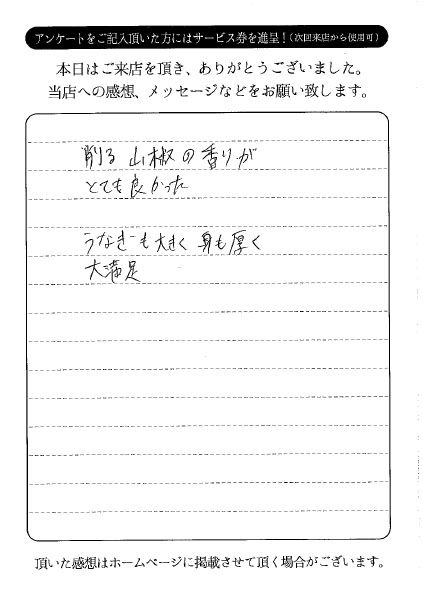 アンケートをご記入頂いた方にはサービス券を進呈！(次回来店から使用可)
本日はご来店を頂き、ありがとうございました。
当店への感想、メッセージなどをお願い致します。
削る 山椒の香りが
とても良かった
うなぎも大きく 身も厚く
大満足
頂いた感想はホームページに掲載させて頂く場合がございます。